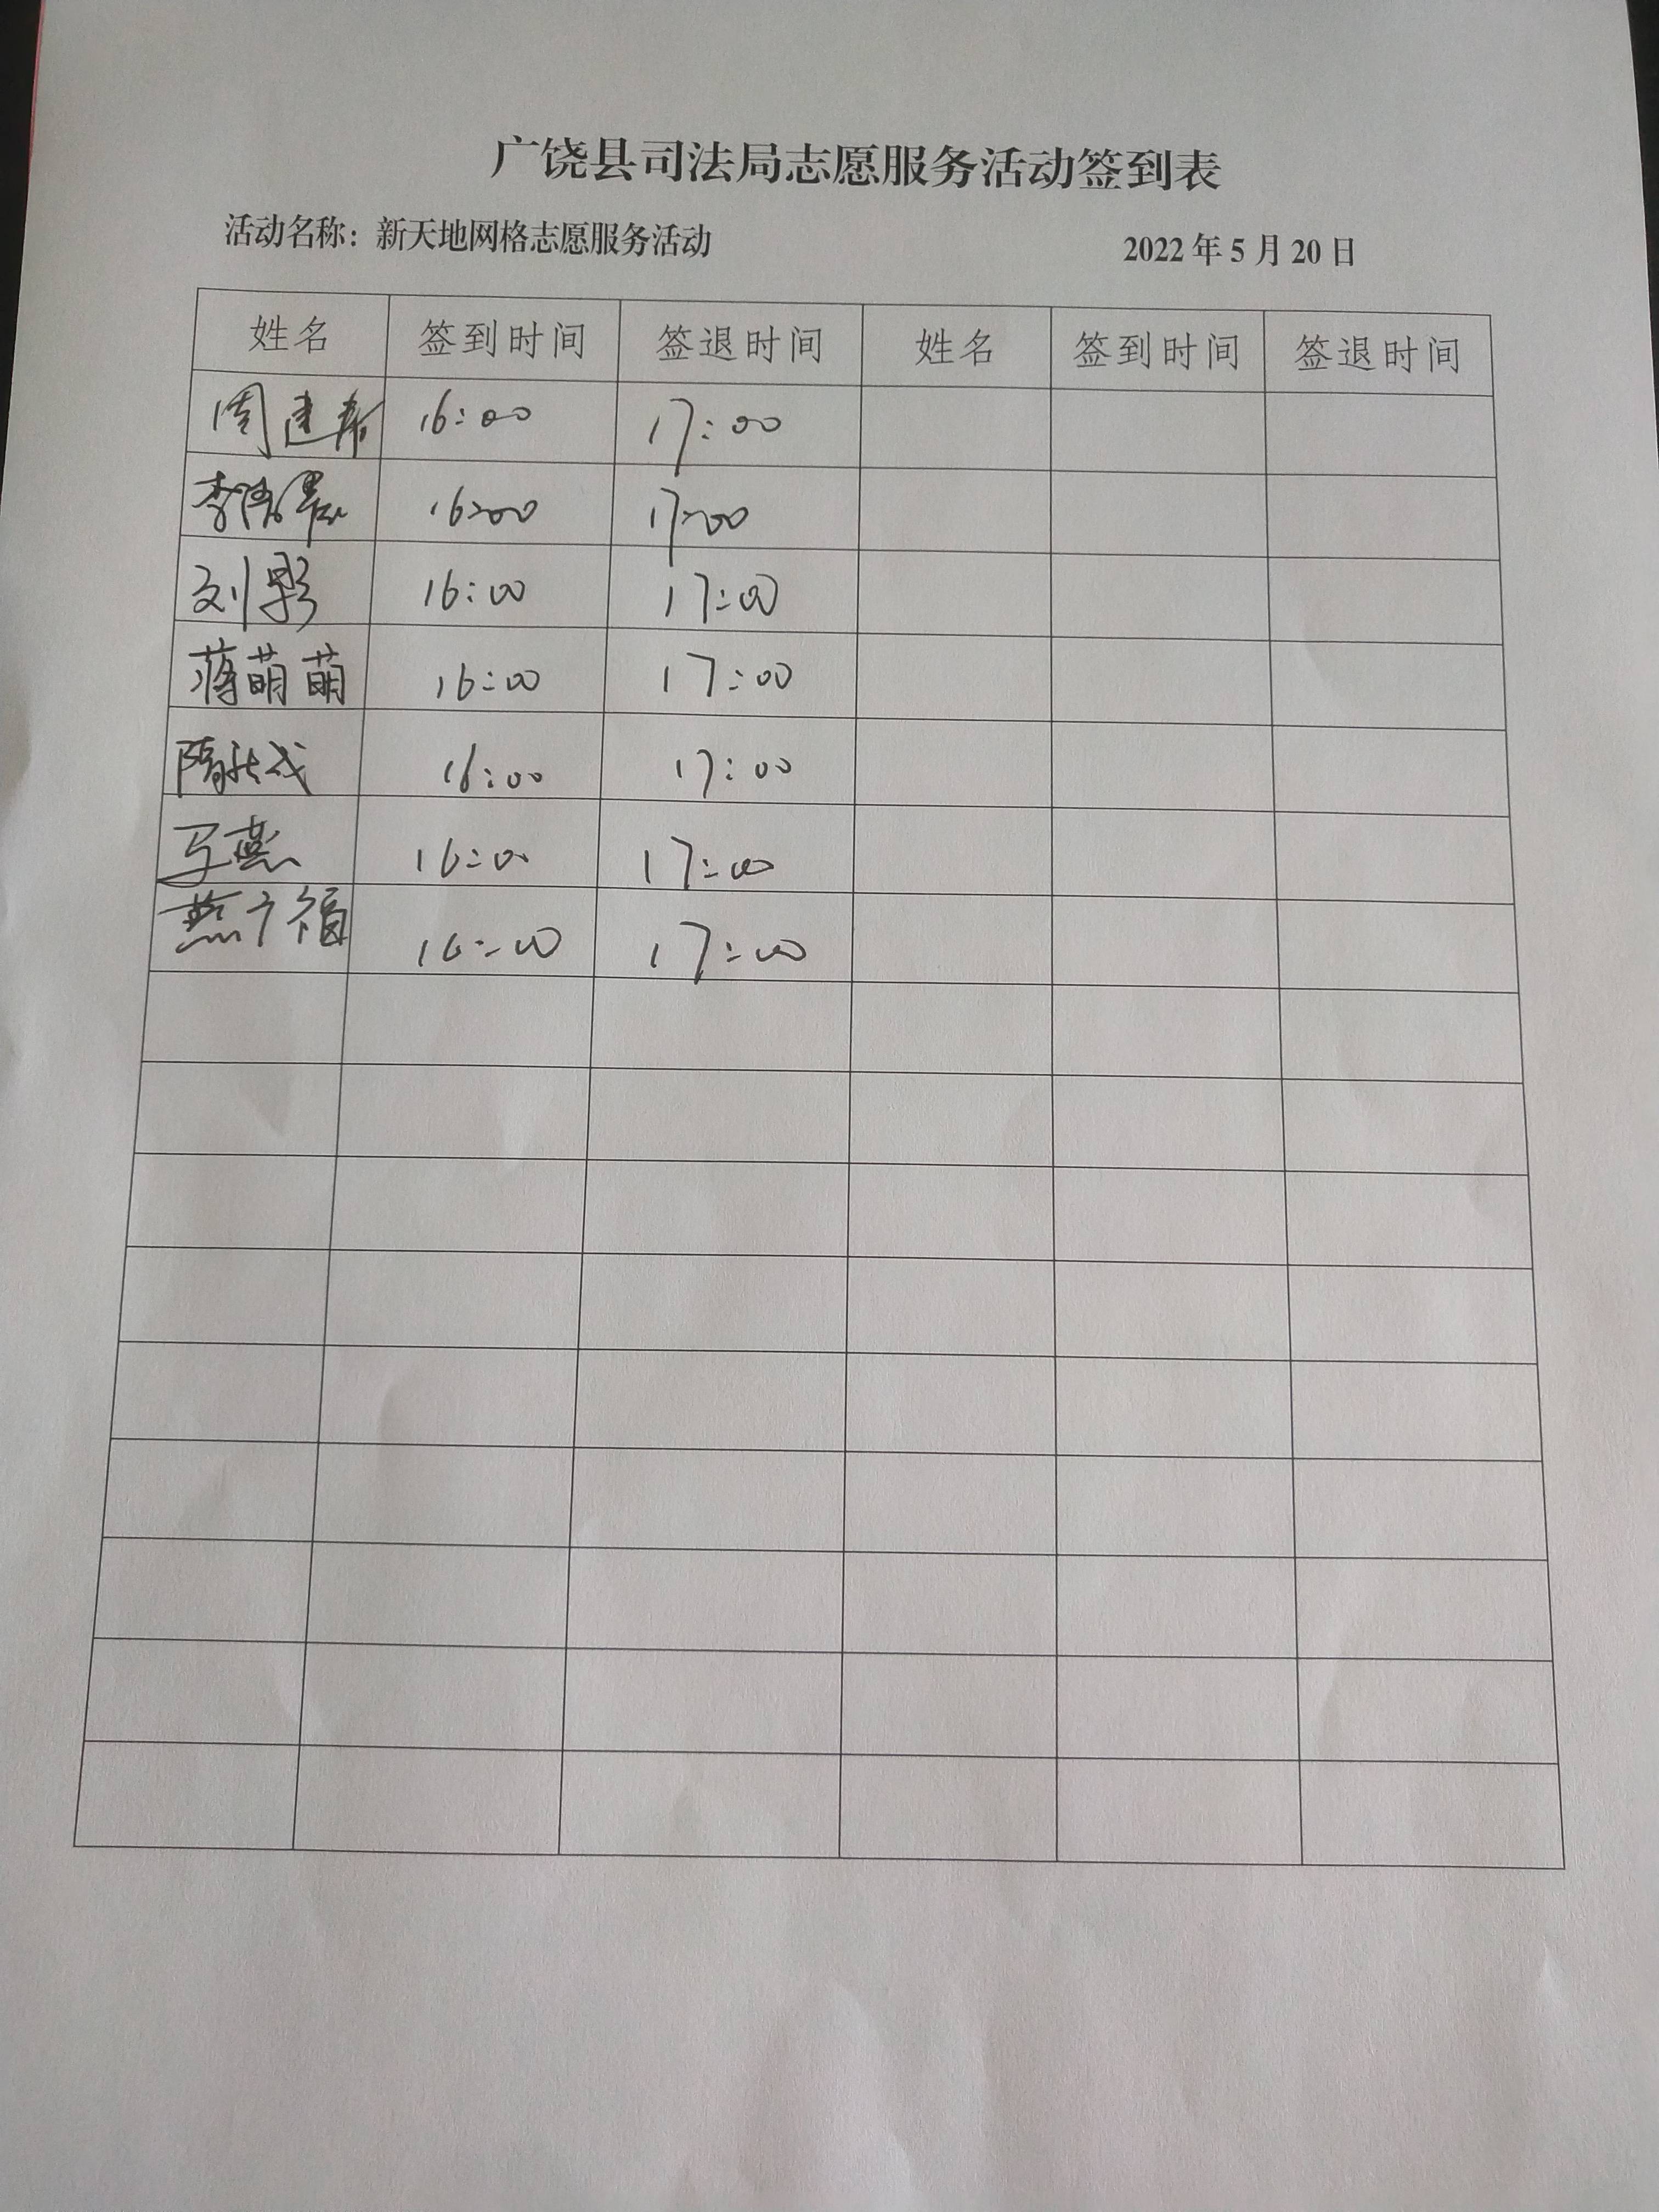 广饶县司法局志愿服务活动签到表
活动名称：新天地网格志愿服务活动 2022年5月20日
姓名 签到时间 签退时间 姓名 签到时间 签退时间
周建 16:00 17:00
李 16:00 17:00
刘影 16:00 17:00
蒋萌萌 16:00 17:00
隋 成 16:00 17:00
马燕 16:00 17:00
燕广福 16:00 17:00